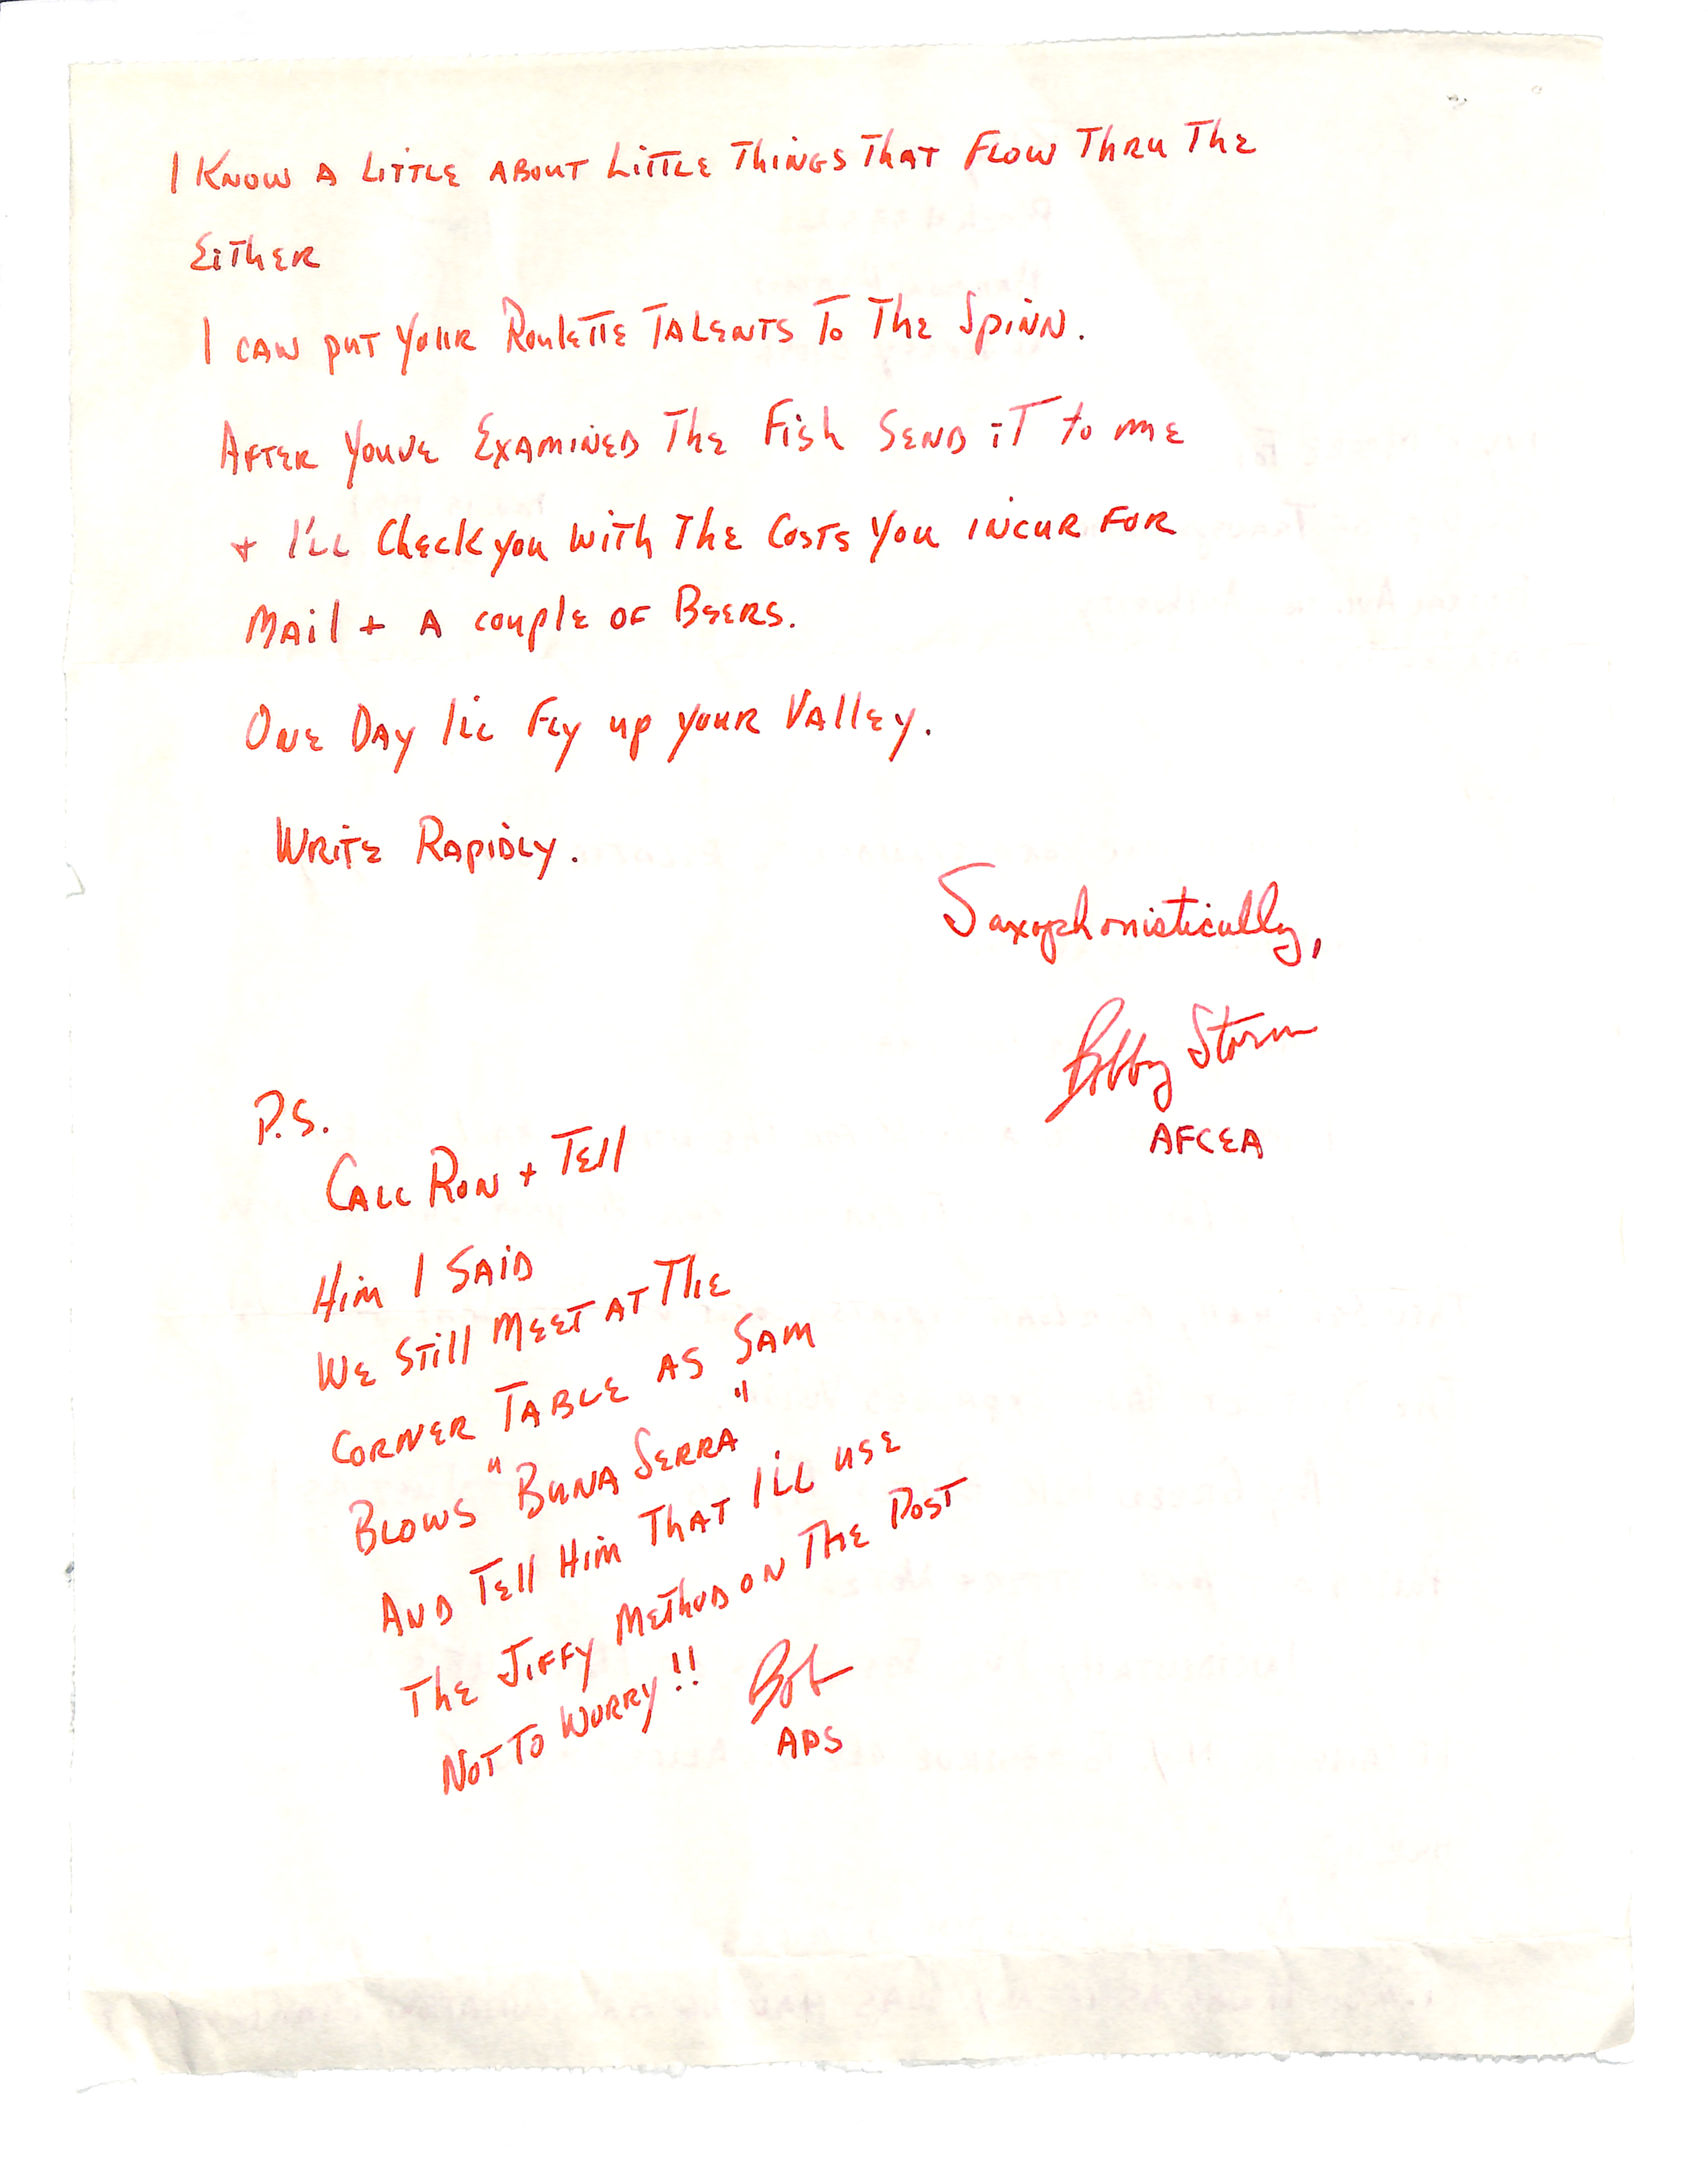 I KNOW A LITTLE ABOUT LITTLE THINGS THAT FLOW THRU THE
EITHER
I CAN PUT YOUR ROULETTE TALENTS TO THE SPINN.
AFTER YOUVE EXAMINED THE FISH SEND IT TO ME
+ I'LL CHECK YOU WITH THE COSTS YOU INCUR FOR
MAIL + A COUPLE OF BEERS.
ONE DAY I'LL FLY UP YOUR VALLEY.
WRITE RAPIDLY.
Saxophonistically,
Bobby Storm
AFCEA
P.S.
CALL RON + TELL
HIM I SAID
WE STILL MEET AT THE
CORNER TABLE AS SAM
BLOWS "BUNA SERRA"
AND TELL HIM THAT I'LL USE
THE JIFFY METHOD ON THE POST
NOT TO WORRY!!
Bob
APS